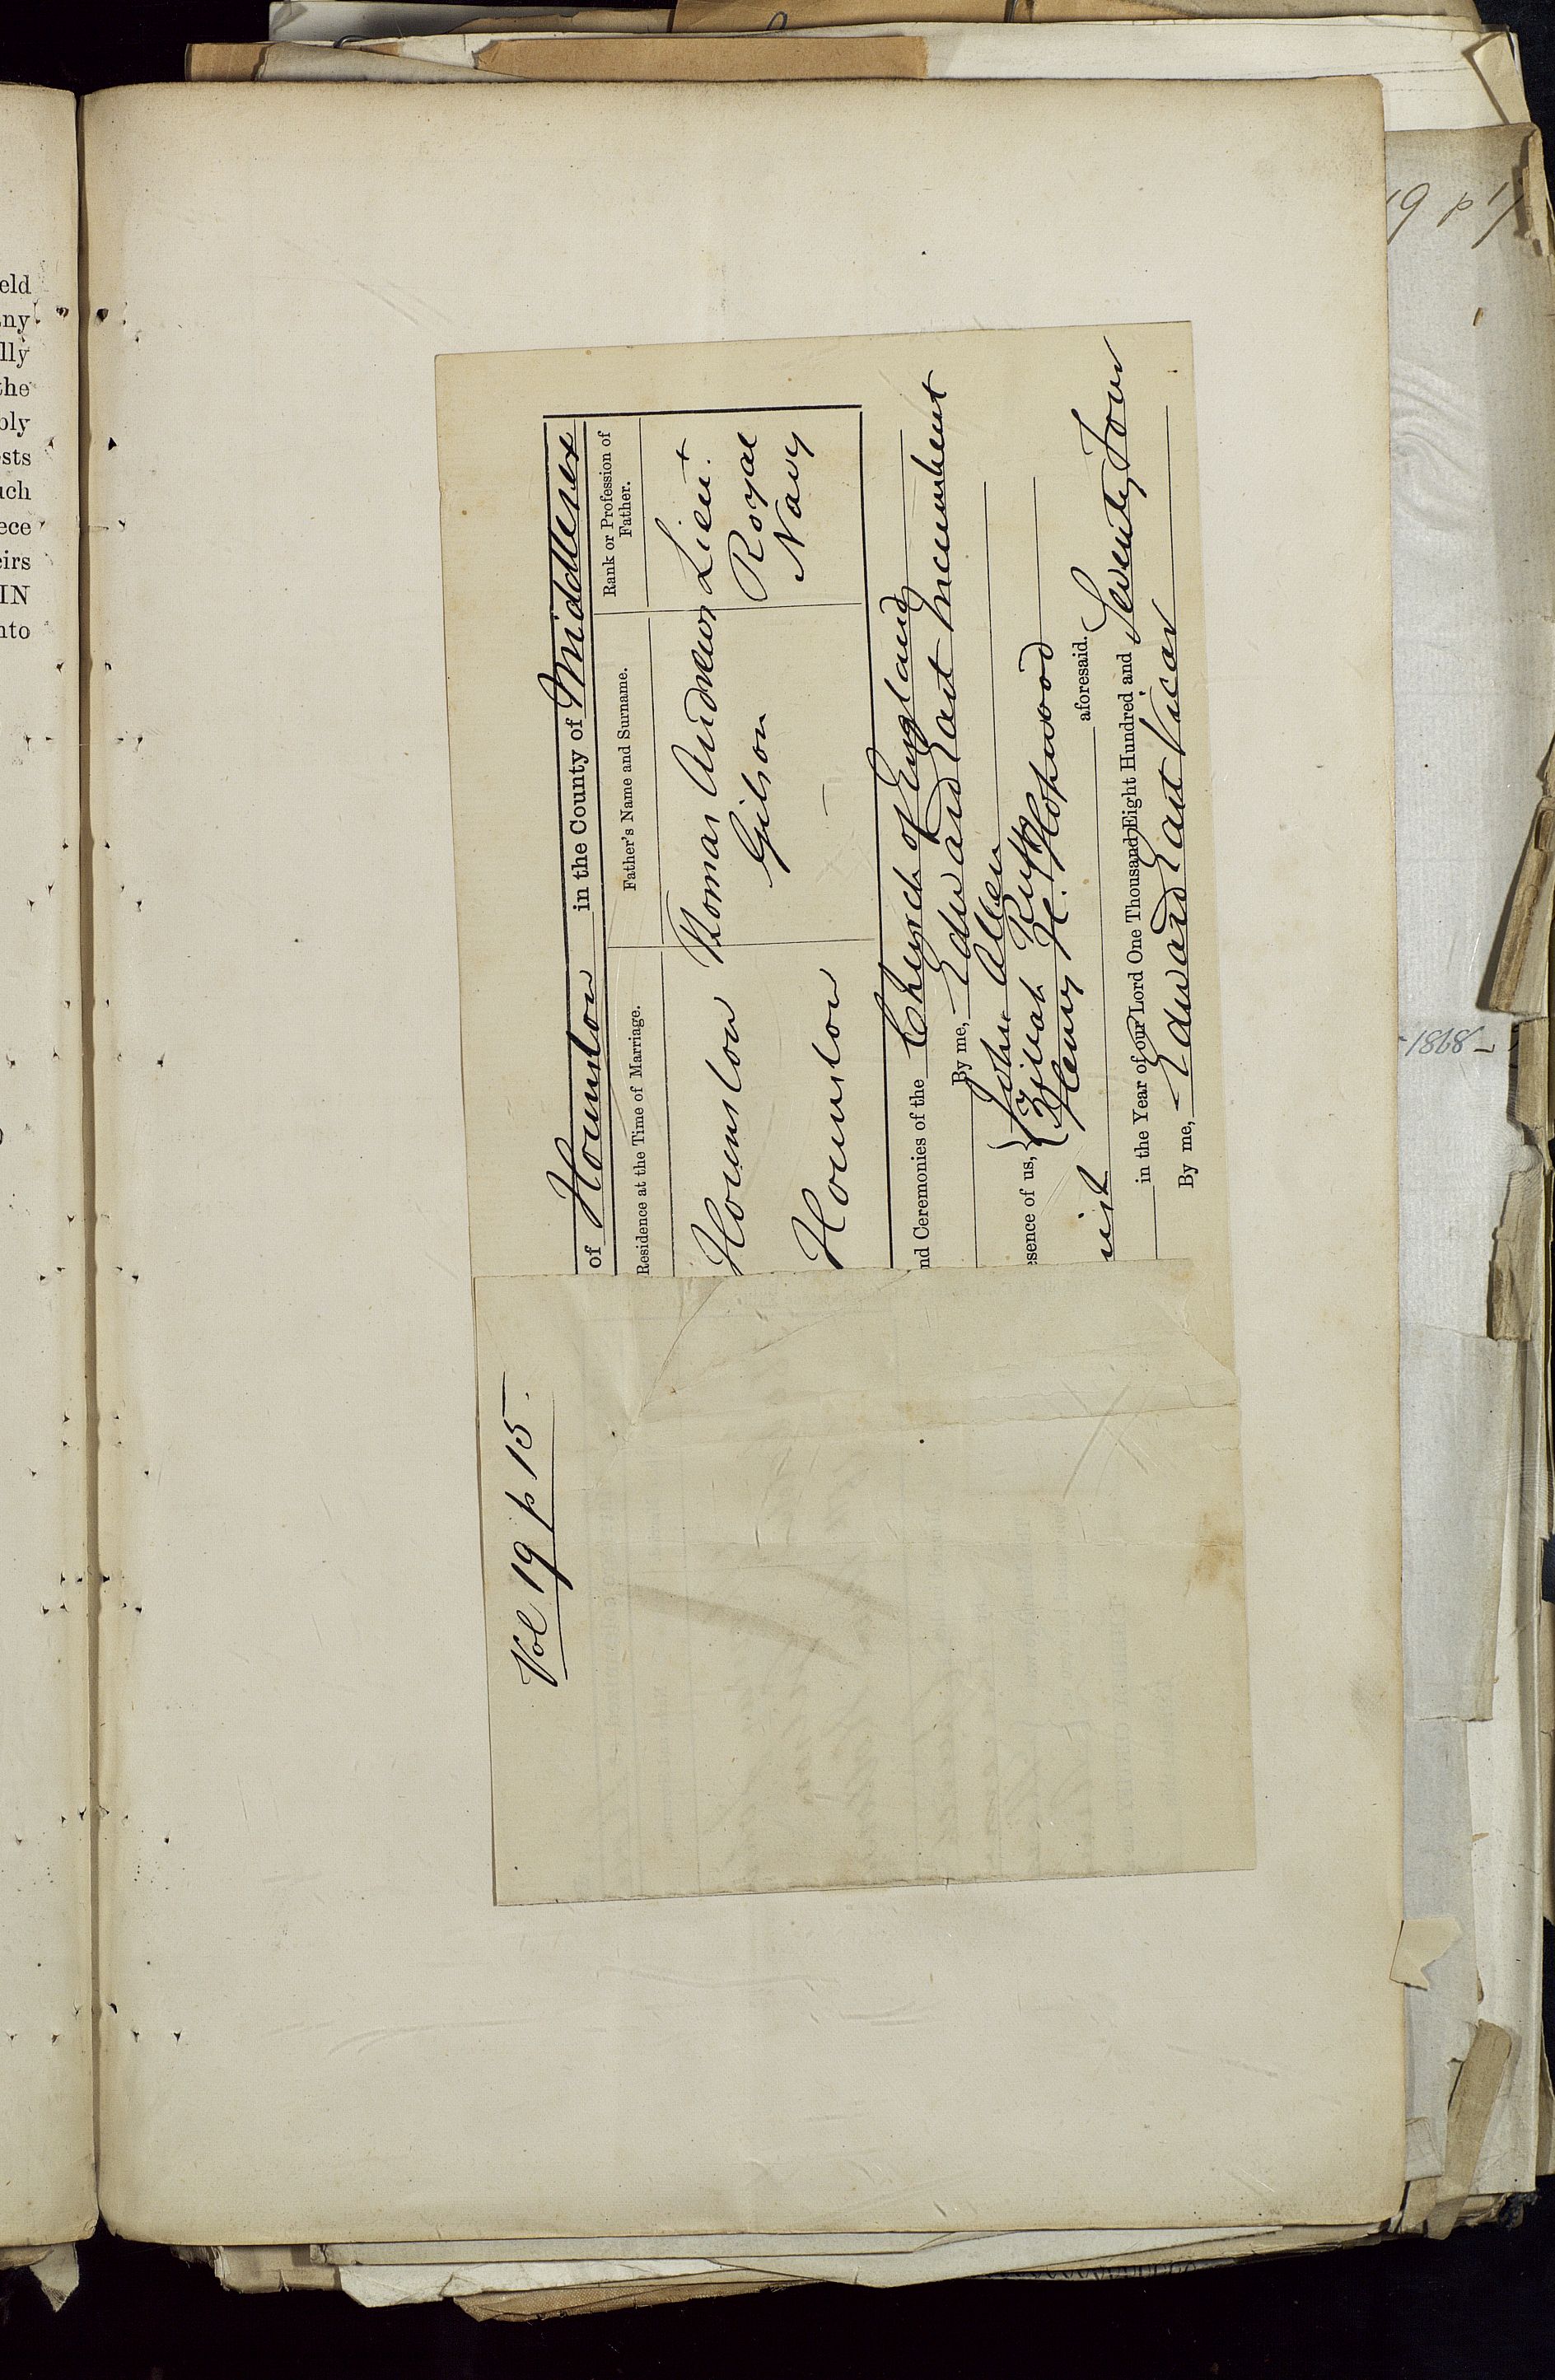 eld
any
lly
the
bly
ests
uch
ece
eirs
IN
nto
Vol 19 p 15.
of Hounslow in the County of Middlesex
Residence at the Time of Marriage.
Father's Name and Surname.
Rank or Profession of Father.
Hounslow
Thomas Andrews Gilson
Lieut
Royal
Navy
Hounslow
nd Ceremonies of the Church of England
By me, Edward East Incumbent
esence of us, { John Allen
Zillah Ruff
Henry H. Hopwood
ish aforesaid.
in the Year of our Lord One Thousand Eight Hundred and Seventy Four
By me, Edward East Vicar
19 p 17
1868